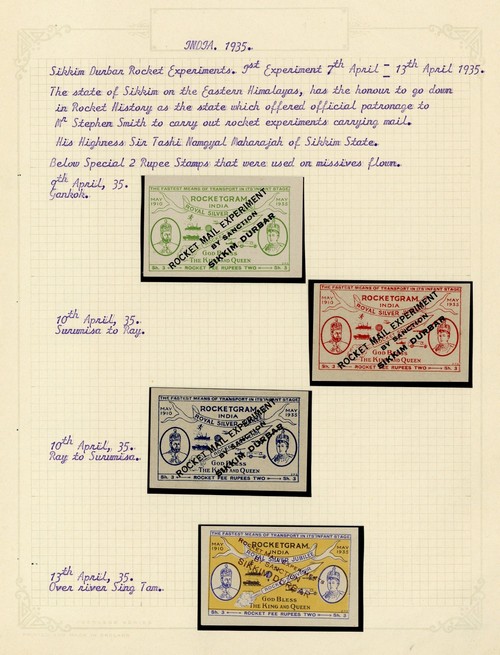 INDIA. 1935.
Sikkim Durbar Rocket Experiments. 1st Experiment 7th April = 13th April 1935.
The state of Sikkim on the Eastern Himalayas, has the honour to go down
in Rocket History as the state which offered official patronage to
Mr Stephen Smith to carry out rocket experiments carrying mail.
His Highness Sir Tashi Namgyal Maharajah of Sikkim State.
Below Special 2 Rupee Stamps that were used on missives flown.
9th April, 35.
Gankok.
THE FASTEST MEANS OF TRANSPORT IN ITS INFANT STAGE
MAY 1910
ROCKETGRAM
INDIA
MAY 1935
ROYAL SILVER
ROCKET MAIL EXPERIMENT
BY SANCTION
SIKKIM DURBAR
GOD BLESS
THE KING AND QUEEN
Sh. 3 ROCKET FEE RUPEES TWO Sh. 3
10th April, 35.
Surumsa to Ray.
THE FASTEST MEANS OF TRANSPORT IN ITS INFANT STAGE
MAY 1910
ROCKETGRAM
INDIA
MAY 1935
ROYAL SILVER
ROCKET MAIL EXPERIMENT
BY SANCTION
SIKKIM DURBAR
GOD BLESS
THE KING AND QUEEN
Sh. 3 ROCKET FEE RUPEES TWO Sh. 3
10th April, 35.
Ray to Surumsa.
THE FASTEST MEANS OF TRANSPORT IN ITS INFANT STAGE
MAY 1910
ROCKETGRAM
INDIA
MAY 1935
ROYAL SILVER
ROCKET MAIL EXPERIMENT
BY SANCTION
SIKKIM DURBAR
GOD BLESS
THE KING AND QUEEN
Sh. 3 ROCKET FEE RUPEES TWO Sh. 3
13th April, 35.
Over river Sing Tam.
THE FASTEST MEANS OF TRANSPORT IN ITS INFANT STAGE
MAY 1910
ROCKETGRAM
INDIA
MAY 1935
ROYAL SILVER JUBILEE
ROCKET MAIL
SANCTION
SIKKIM DURBAR
GOD BLESS
THE KING AND QUEEN
Sh. 3 ROCKET FEE RUPEES TWO Sh. 3